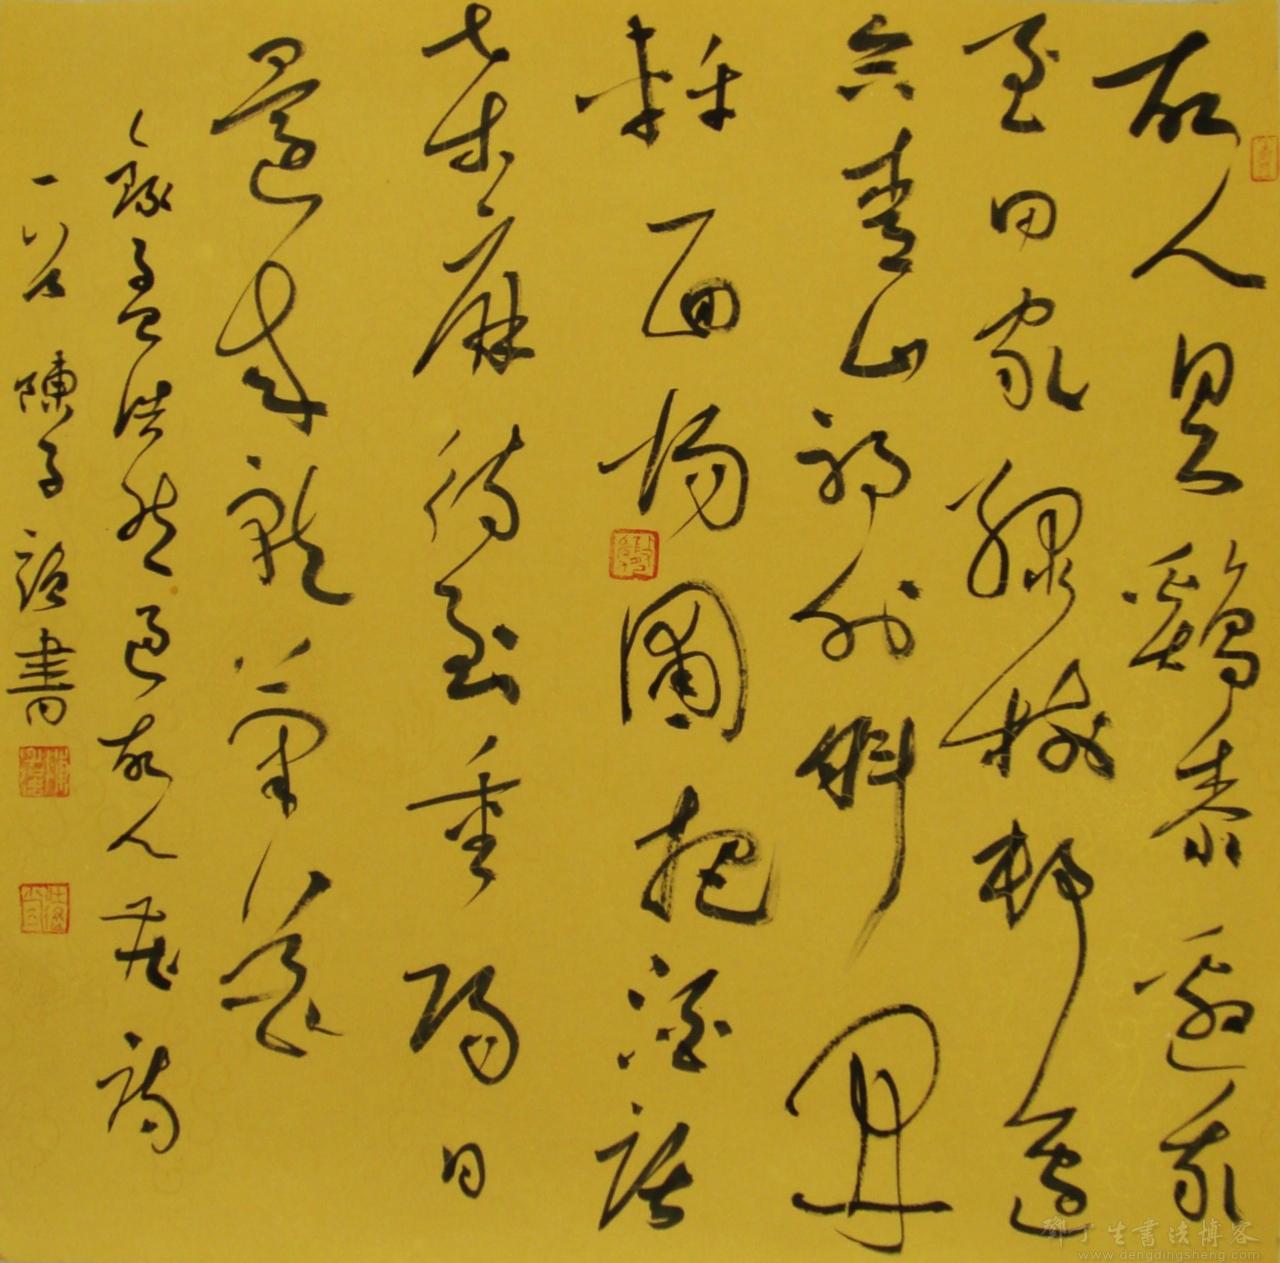 故人具鷄黍邀我
至田家綠樹村邊
合青山郭外斜開
軒面場圃把酒話
桑麻待到重陽日
還來就菊花
錄孟浩然過故人莊詩
陳子書
鄧丁生書法博客
www.dengdingsheng.com